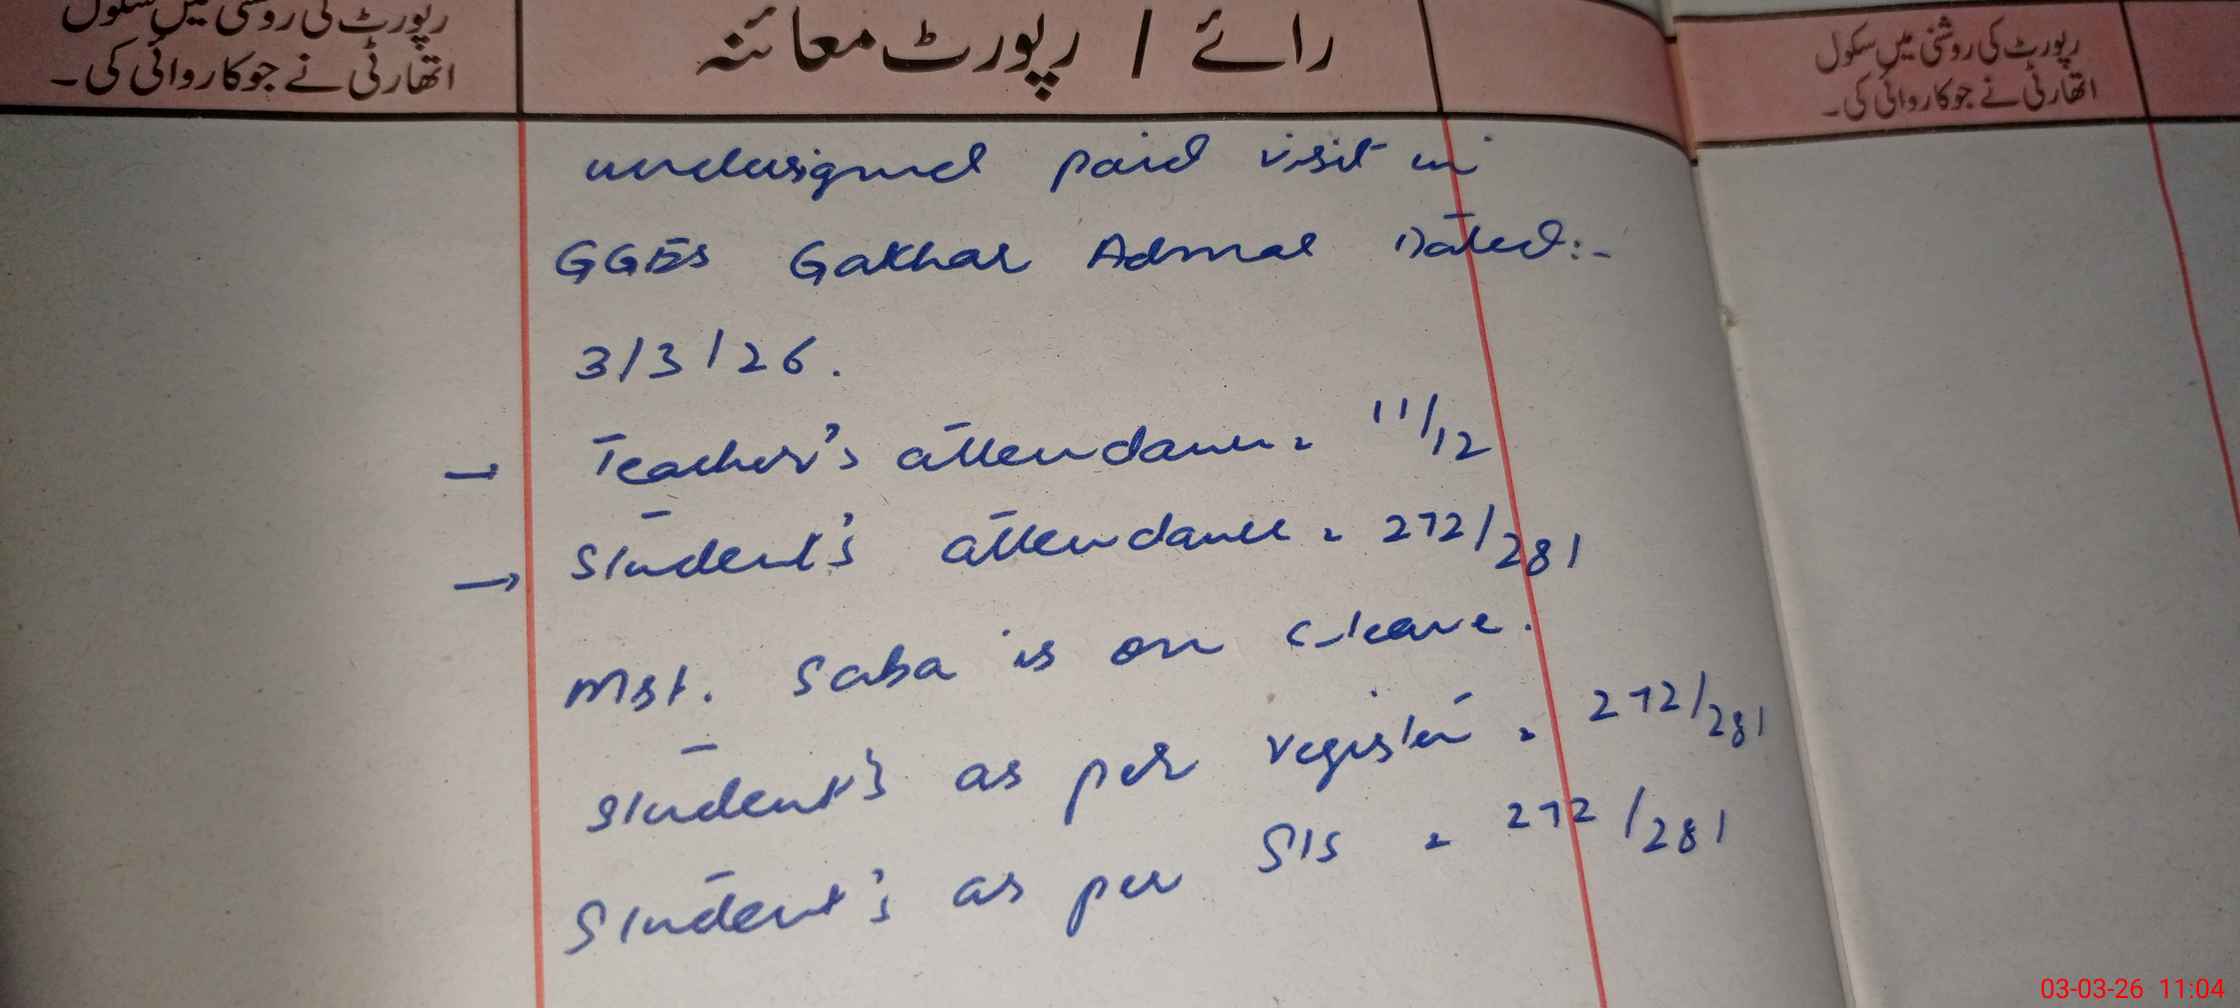 رپورٹ کی روشنی میں سکول
اتھارٹی نے جو کاروائی کی۔
رائے / رپورٹ معائنہ
رپورٹ کی روشنی میں سکول
اتھارٹی نے جو کاروائی کی۔
undersigned paid visit in
GGES Gakhar Admal Dated:-
3/3/26.
→ Teacher's attendance = 11/12
→ Student's attendance = 272/281
Mst. Saba is on c-leave.
Student's as per register = 272/281
Student's as per SIS = 272/281
03-03-26 11:04